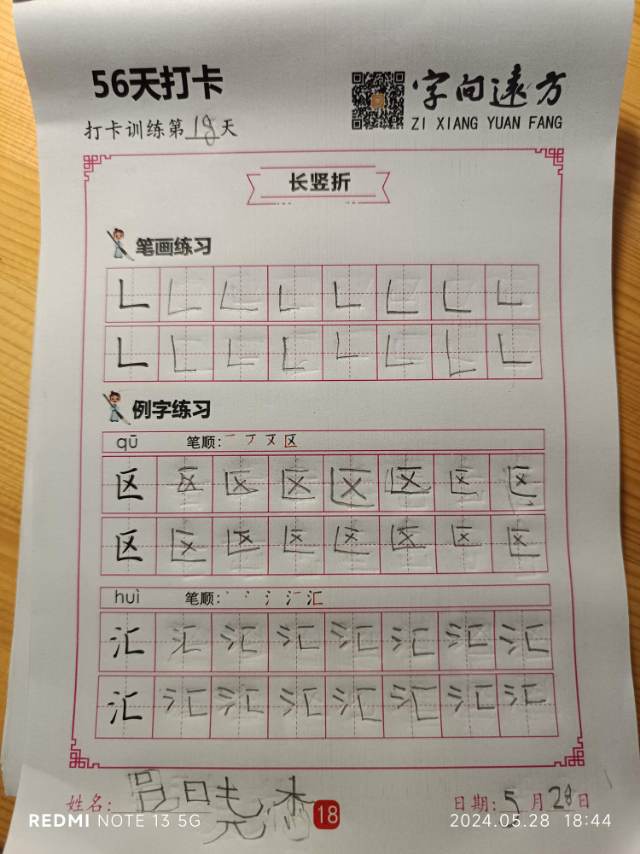 56天打卡
字向遠方
打卡训练第18天
ZI XIANG YUAN FANG
长竖折
笔画练习
例字练习
qū 笔顺: 一 丆 又 区
区 区 区 区 区 区 区 区
区 区 区 区 区 区 区 区
huì 笔顺: 丶 丶 氵 汇 汇
汇 汇 汇 汇 汇 汇 汇 汇
汇 汇 汇 汇 汇 汇 汇 汇
姓名: 吕晓
日期: 5月28日
18
REDMI NOTE 13 5G
2024.05.28 18:44